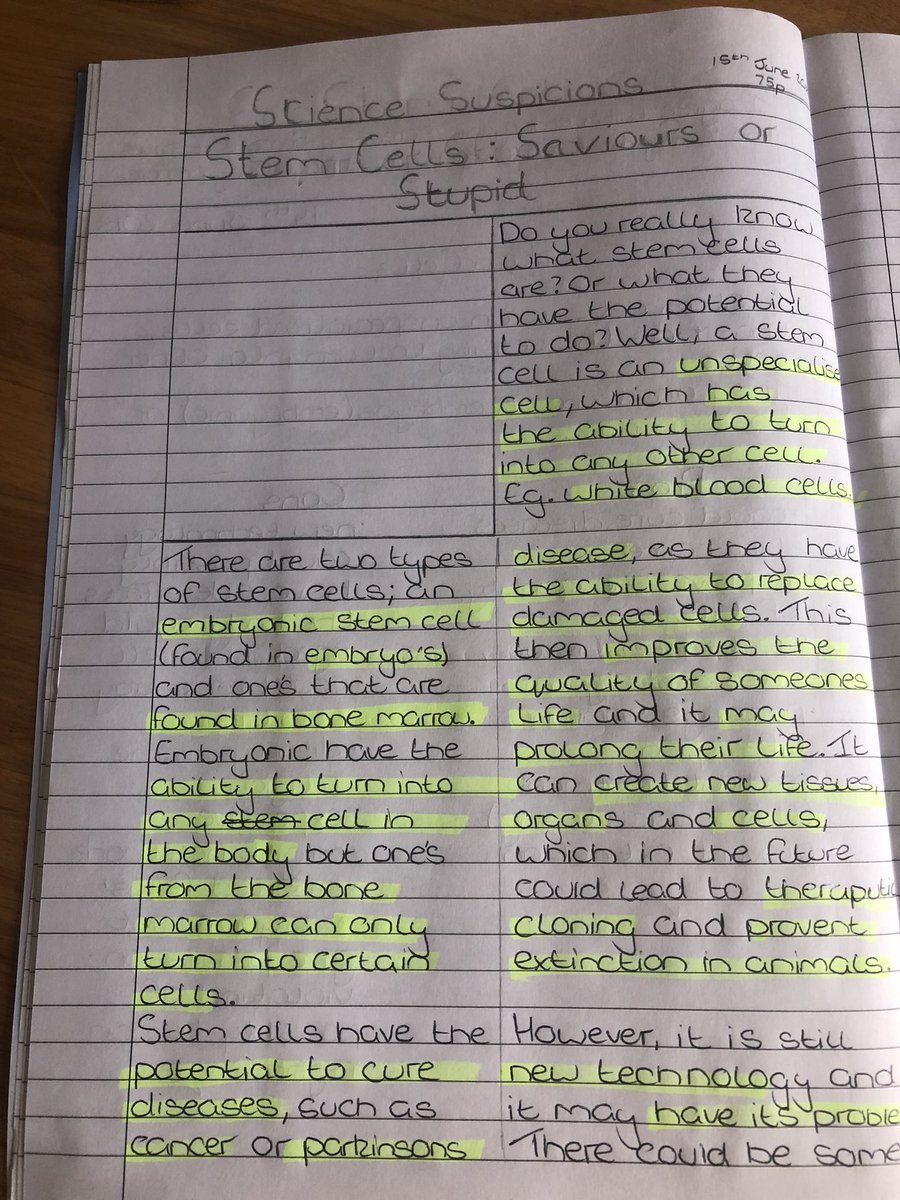 15th June
75p
Science Suspicions
Stem Cells: Saviours or
Stupid
Do you really know
what stem cells
are? Or what they
have the potential
to do? Well, a stem
cell is an unspecialise
cell, which has
the ability to turn
into any other cell.
Eg. white blood cells.
There are two types
of stem cells; an
embryonic stem cell
(found in embryo's)
and one's that are
found in bone marrow.
Embryonic have the
ability to turn into
any stem cell in
the body but one's
from the bone
marrow can only
turn into certain
cells.
Stem cells have the
potential to cure
diseases, such as
cancer or parkinsons
disease, as they have
the ability to replace
damaged cells. This
then improves the
quality of someones
life and it may
prolong their life. It
can create new tissues,
organs and cells,
which in the future
could lead to theraputic
cloning and provent
extinction in animals.
However, it is still
new technology and
it may have it's proble
There could be some